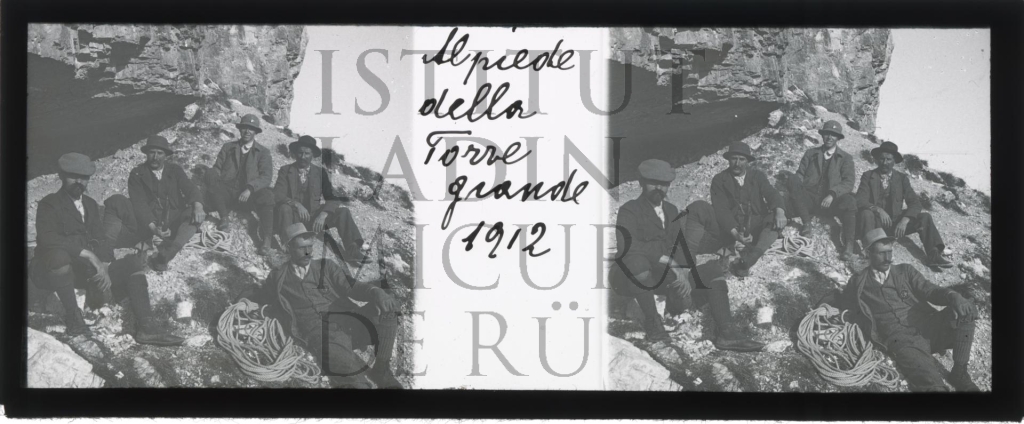 Al piede
della
Torre
grande
1912
ISTITUT
LADIN
MICURÁ
DE RÜ